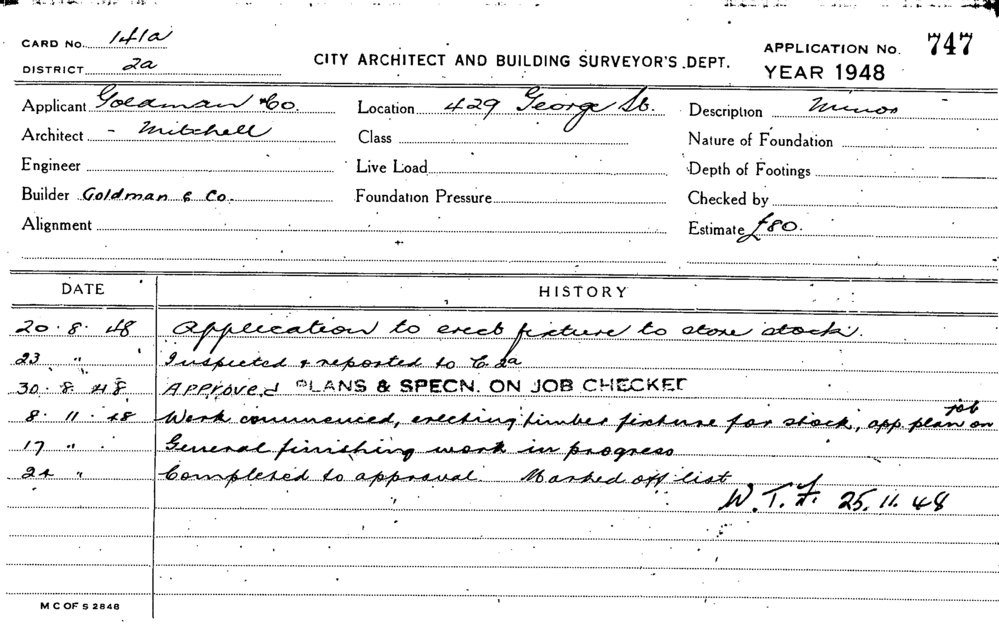 CARD No. 141a
DISTRICT 2a
CITY ARCHITECT AND BUILDING SURVEYOR'S DEPT.
APPLICATION No. 747
YEAR 1948
Applicant Goldman & Co. Location 429 George St. Description Minor
Architect - Mitchell Class Nature of Foundation
Engineer Live Load Depth of Footings
Builder Goldman & Co. Foundation Pressure Checked by
Alignment Estimate £80.
DATE HISTORY
20.8.48 Application to erect fixture to store stock.
23 " Inspected & reported to C.2a
30.8.48 Approved PLANS & SPECN. ON JOB CHECKED
8.11.48 Work commenced, erecting timber fixture for stock, app plan on job
17 " General finishing work in progress
24 " Completed to approval. Marked off list
W.T.F. 25.11.48
M C OF S 2848